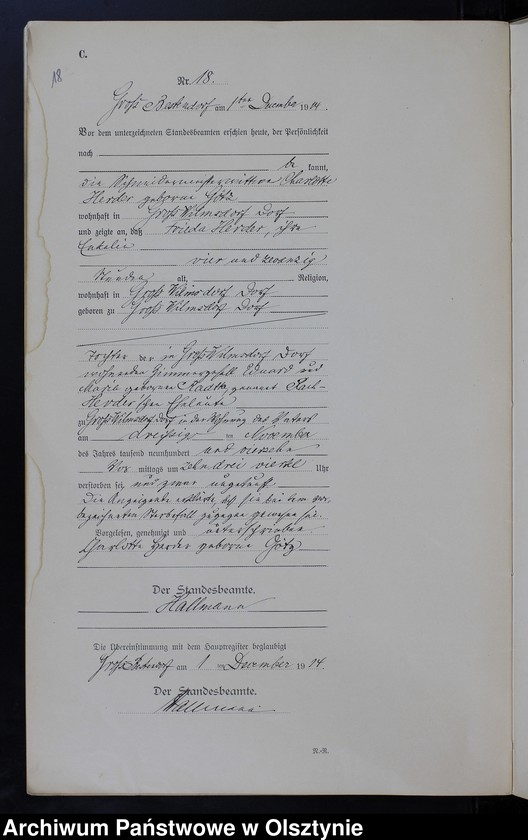 C.
18
Nr. 18.
Groß am 1ten Dezember 1914.
Vor dem unterzeichneten Standesbeamten erschien heute, der Persönlichkeit
nach
be kannt,
die Schneidermeisterwittwe Charlotte
Herder geborene Götz
wohnhaft in Groß Wilmsdorf Dorf
und zeigte an, daß Frieda Herder, ihre
Enkelin
vier und zwanzig
Stunden alt, Religion,
wohnhaft in Groß Wilmsdorf Dorf
geboren zu Groß Wilmsdorf Dorf
Tochter der in Groß Wilmsdorf Dorf
wohnenden Zimmergesell Eduard und
Maria geborene genannt
Herder'schen Eheleute
zu Groß Wilmsdorf Dorf in der Wohnung des Vaters
am dreißig im November
des Jahres tausend neunhundert und vierzehn
Vor mittags um zehn drei viertel Uhr
verstorben sei, und zwar ungetauft
Die Anzeigende erklärte, daß sie bei dem vor-
bezeichneten Sterbefall zugegen gewesen sei.
Vorgelesen, genehmigt und unterschrieben.
Charlotte Herder geborene Götz
Der Standesbeamte.
Hallmann
Die Übereinstimmung mit dem Hauptregister beglaubigt
Groß am 1 ten Dezember 1914.
Der Standesbeamte.
Hallmann
N.-R.
Archiwum Państwowe w Olsztynie